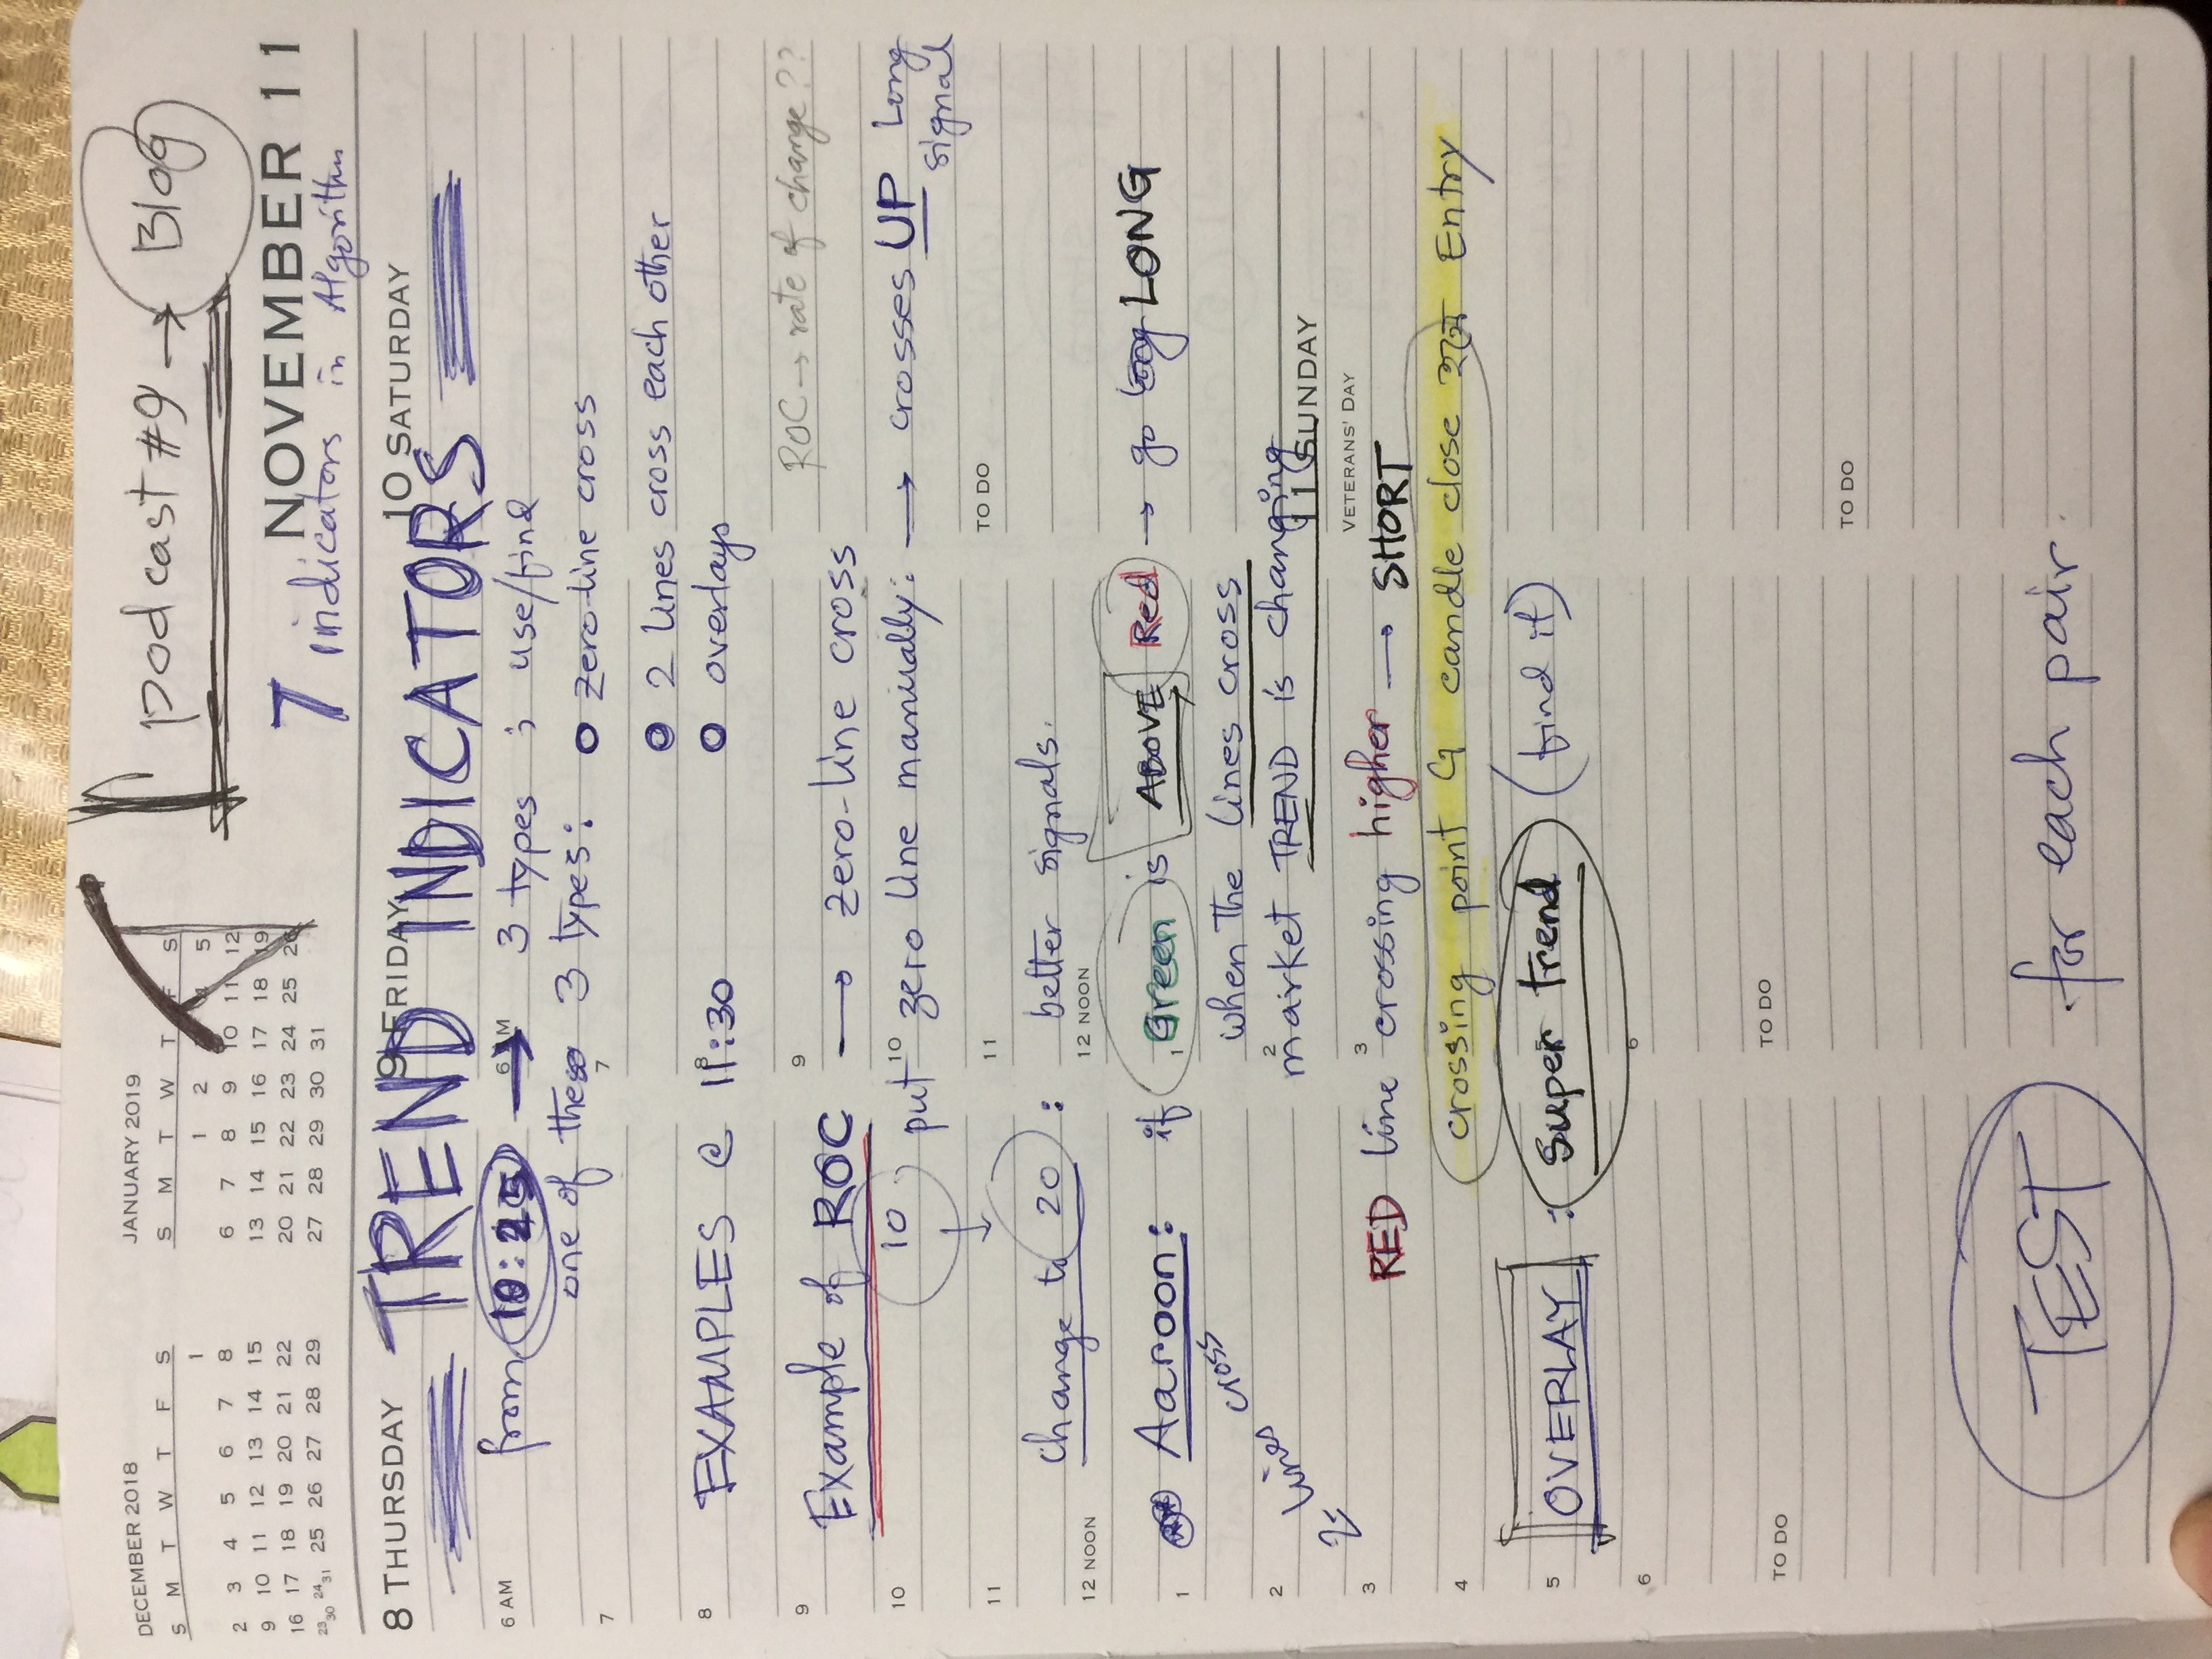 podcast #9 → Blog
DECEMBER 2018
S M T W T F S
1
2 3 4 5 6 7 8
9 10 11 12 13 14 15
16 17 18 19 20 21 22
23/30 24/31 25 26 27 28 29
JANUARY 2019
S M T W T F S
1 2 4 5
6 7 8 9 10 11 12
13 14 15 16 17 18 19
20 21 22 23 24 25 26
27 28 29 30 31
NOVEMBER 11
7 indicators in Algorithm
8 THURSDAY 9 FRIDAY 10 SATURDAY
TREND INDICATORS
6 AM 6 AM
from 10:25 → 3 types ; use/find
one of these 3 types: o zero-line cross
7 7
o 2 lines cross each other
8 8
EXAMPLES @ 11:30 o overlays
ROC → rate of change??
9 9
Example of ROC → zero-line cross
10 10
10 put zero line manually: → crosses UP Long
signal
TO DO
11 11
change to 20 : better signals.
12 NOON 12 NOON
Aaroon: if Green is ABOVE Red → go LONG
1 1
2 lines cross
when the lines cross
2 2
market TREND is changing
11 SUNDAY
VETERANS' DAY
3 3
RED line crossing higher → SHORT
4
crossing point G candle close হলে Entry
5
OVERLAY : super trend (find it)
6 6
TO DO TO DO
TO DO
TEST for each pair.